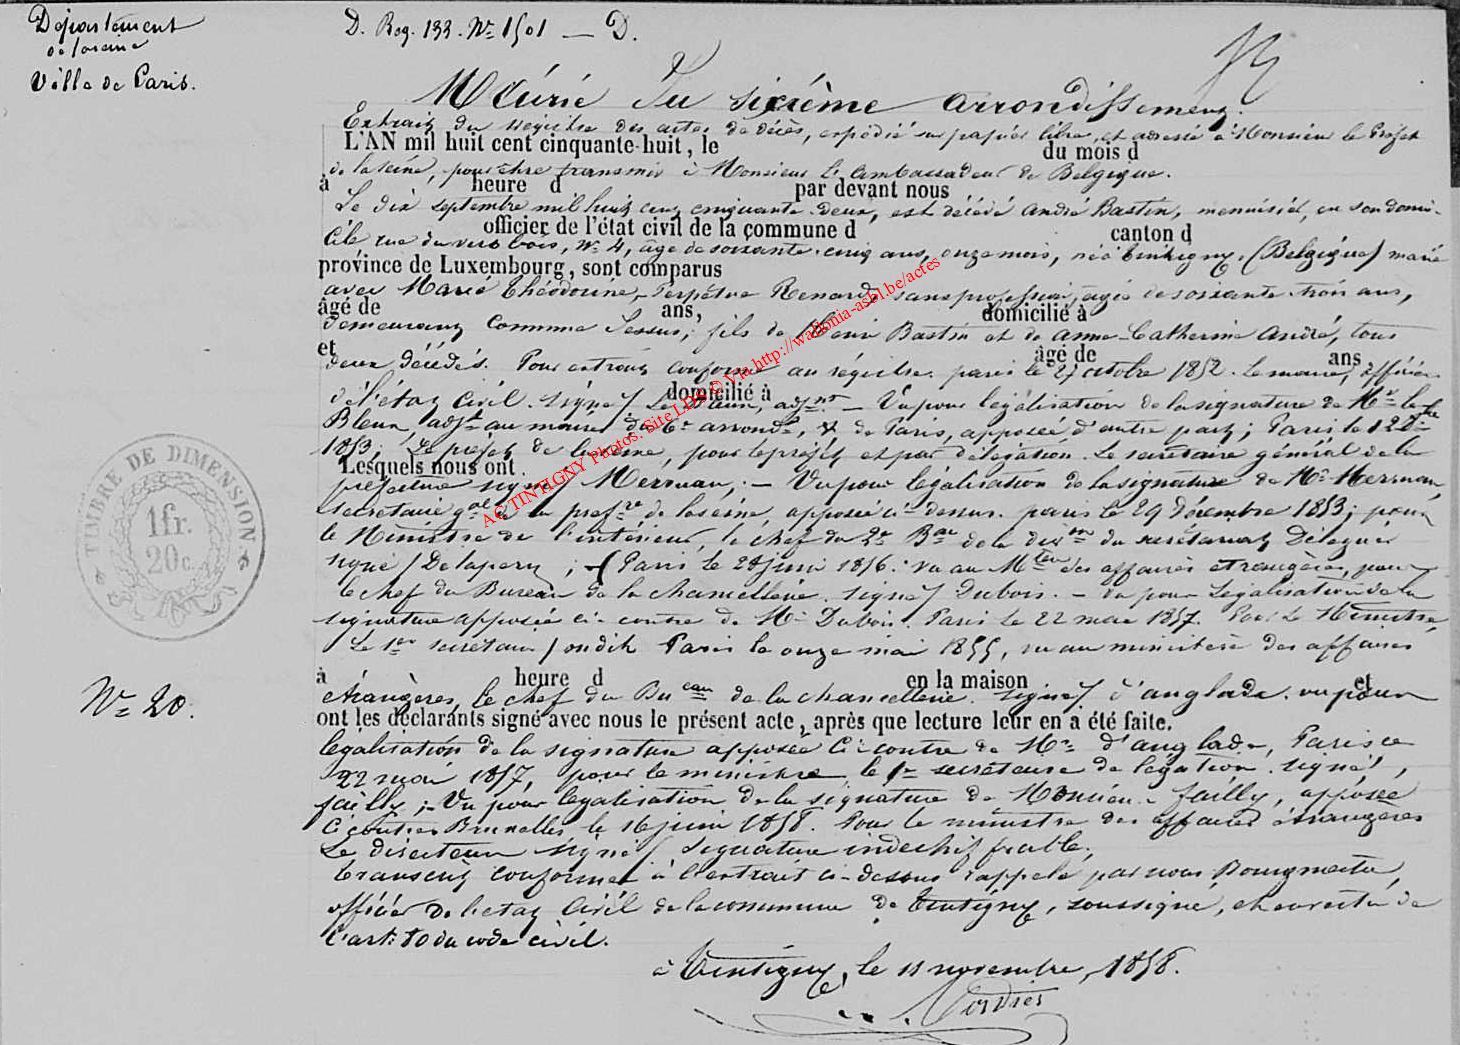 Département
de la seine
Ville de Paris.
D. Reg. 133. N° 1501 — D.
Mairie du sixième arrondissement.
Extrait du registre des actes de décès, expédié sur papier libre, et adressé à Monsieur le Préfet
L'AN mil huit cent cinquante-huit, le du mois d
de la seine, pour être transmis à Monsieur L'ambassadeur de Belgique.
à heure d par devant nous
Le dix septembre mil huit cent cinquante-deux, est décédé André Bastin, menuisier, en son domi-
officier de l'état civil de la commune d canton d
cile rue du vert bois, N° 4, âgé de soixante-cinq ans, onze mois, né à Tintigny, (Belgique) marié
province de Luxembourg, sont comparus
avec Marie Théodorine-Perpétue Renard, sans profession, âgée de soixante-trois ans,
âgé de ans, domicilié à
demeurant comme dessus; fils de Henri Bastin et de Anne-Catherine André, tous
et âgé de ans
deux décédés. Pour extrait conforme au régistre. paris le 27 octobre 1852. Le maire, officier
domicilié à
de l'état civil. signé/ Le adj.nt — Vu pour légalisation de la signature de Mr. le
adj.t au maire du 6e arrond.t, de Paris, apposée d'autre part; Paris le
1853; Le préfet de la seine, pour le préfet et par délégation. Le secrétaire général de la
Lesquels nous ont
préfecture signé/ Merruau; — Vu pour légalisation de la signature de Mr. Merruau,
secrétaire gal de la préf.re de la seine, apposée ci-dessus. paris le 29 décembre 1853; pour
le Ministre de l'intérieur, le chef du 2e Bau de la dison du secrétariat Délégué
signé/ ; — (Paris le 28 juin 1856. vu au Mtère des affaires étrangères, pour
le chef du Bureau de la chancellerie. signé/ Dubois. — Vu pour Légalisation de la
signature apposée ci-contre de Mr Dubois. Paris le 22 mai 1857. Pour Le Ministre,
Le 1er secrétaire / on dit Paris le onze mai 1855, vu au ministère des affaires
à heure d en la maison et
étrangères, le chef du Bureau de la chancellerie. signé/ d'anglade. vu pour
ont les déclarants signé avec nous le présent acte, après que lecture leur en a été faite.
légalisation de la signature apposée ci-contre de Mr. d'anglade, Paris ce
22 mai 1857, pour le ministre, le 1er secrétaire de légation. signé/,
failly; — Vu pour légalisation de la signature de Monsieur failly, apposée
ci contre Bruxelles le 16 juin 1858. Pour le ministre des affaires étrangères
Le directeur signé/ signature indechiffrable.
Transcrit conforme à l'extrait ci-dessus rappelé par nous Bourgmestre,
officier de l'état civil de la commune de Tintigny, soussigné, et en vertu de
l'art: 80 du code civil.
à Tintigny, le 11 novembre, 1858.
TIMBRE DE DIMENSION
1 fr.
20 c.
N° 20.
AC TINTIGNY Photos: Site LDS © Via http://wallonia-asbl.be/actes